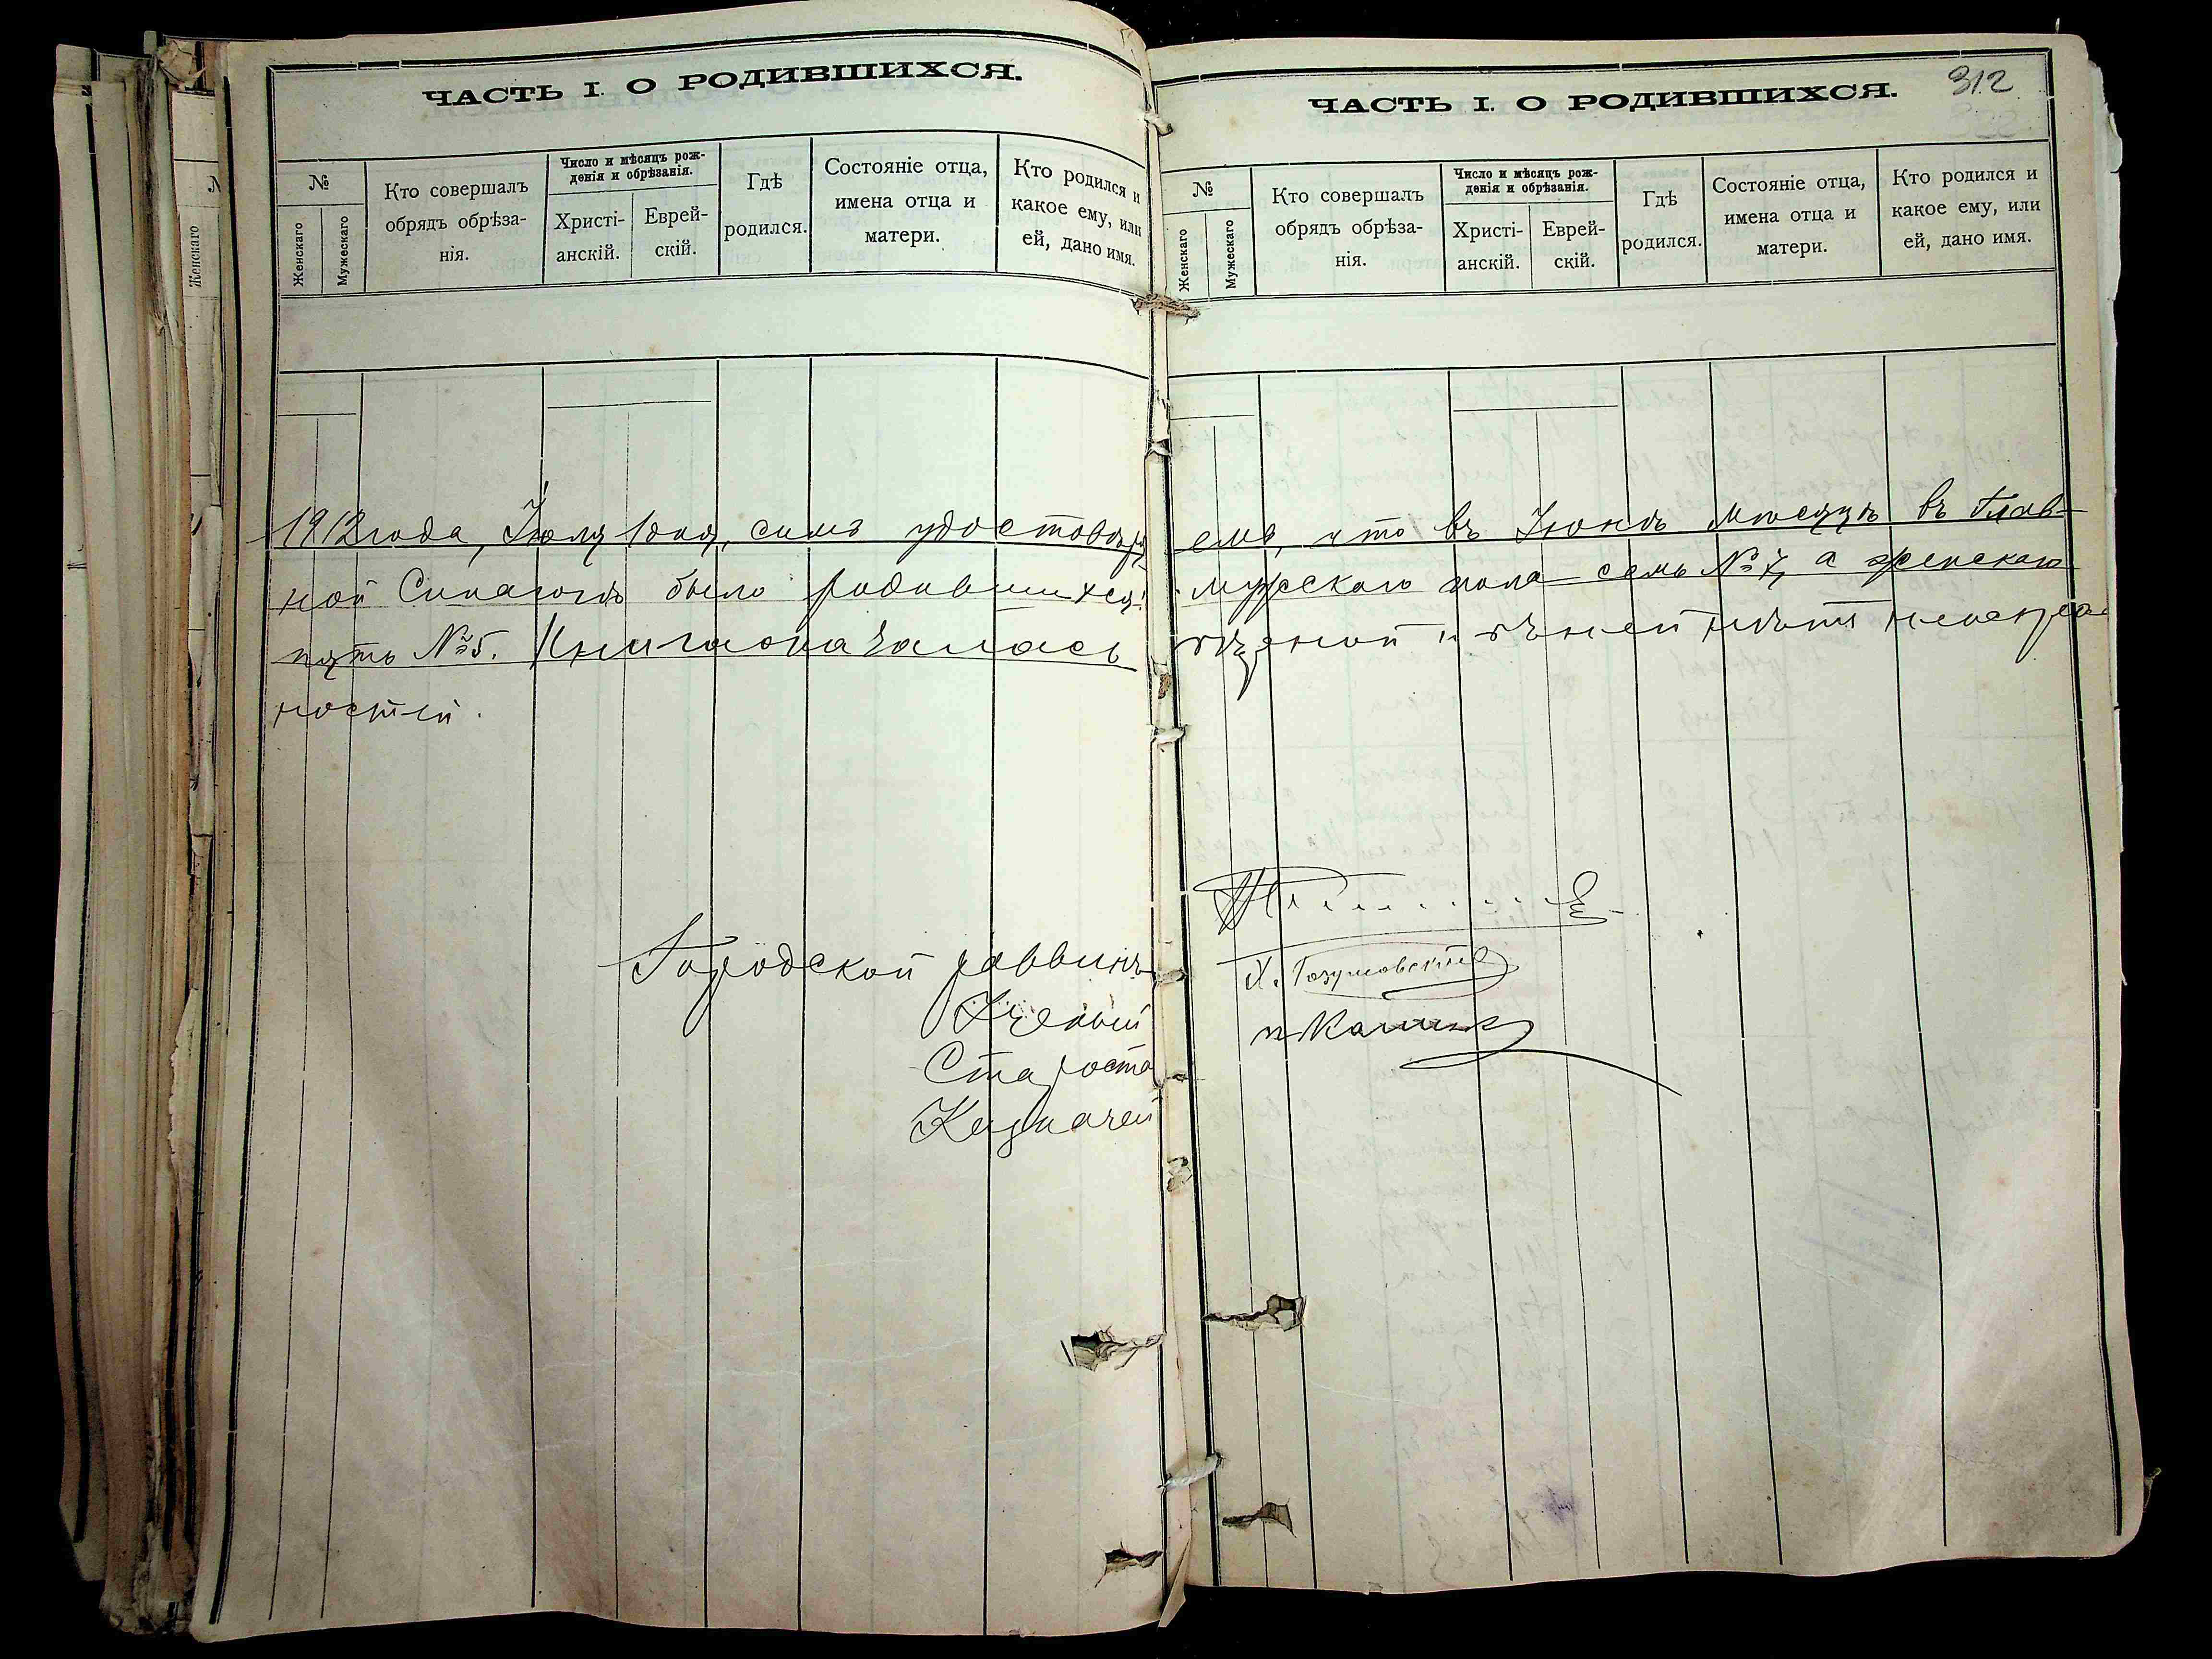 ЧАСТЬ I. О РОДИВШИХСЯ.
№
Женскаго
Мужескаго
Кто совершалъ
обрядъ обрѣза-
нія.
Число и мѣсяцъ рож-
денія и обрѣзанія.
Христі-
анскій.
Еврей-
скій.
Гдѣ
родился.
Состояніе отца,
имена отца и
матери.
Кто родился и
какое ему, или
ей, дано имя.
312
ЧАСТЬ I. О РОДИВШИХСЯ.
№
Женскаго
Мужескаго
Кто совершалъ
обрядъ обрѣза-
нія.
Число и мѣсяцъ рож-
денія и обрѣзанія.
Христі-
анскій.
Еврей-
скій.
Гдѣ
родился.
Состояніе отца,
имена отца и
матери.
Кто родился и
какое ему, или
ей, дано имя.
Женскаго
1912 года, Іюля 1 дня, симъ удостовѣря емъ, что въ Іюнѣ мѣсяцѣ въ Глав-
ной Синагогѣ было родившихся: мужскаго пола семь № 7, а женскаго
пять № 5. Книга
ностей.
Городской раввинъ
Ученый Х. Гозумовскій
Староста
Казначей